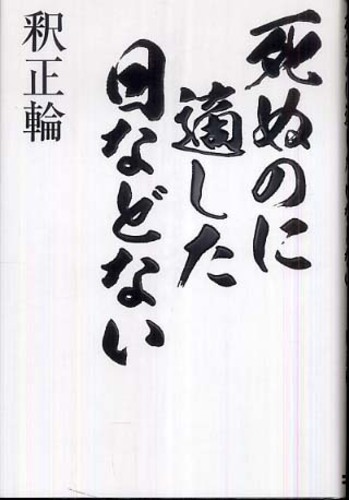 死ぬのに
適した
日などない
釈正輪